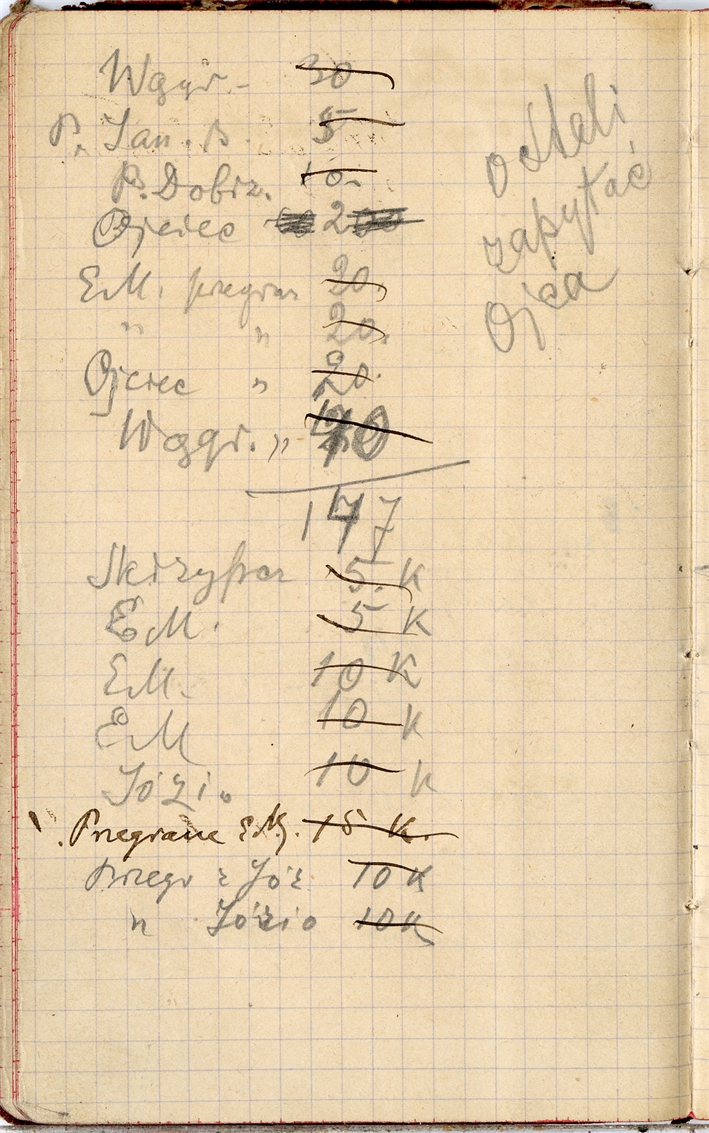 Węgr. - 30
P. Jan. B. 5
P. Dobrz. 10.
Ojciec 200
E.M. przegran 20.
" " 20.
Ojciec " 20.
Węgr. "
147
Skrzypar 5. K
E.M. 5 K
E.M. 10 K
E.M 10 K
Józio 10 K
Przegrane E.M. 15 K.
Przegr z Józ 10 K
" Józio 10 K
o Steli
zapytać
Ojca